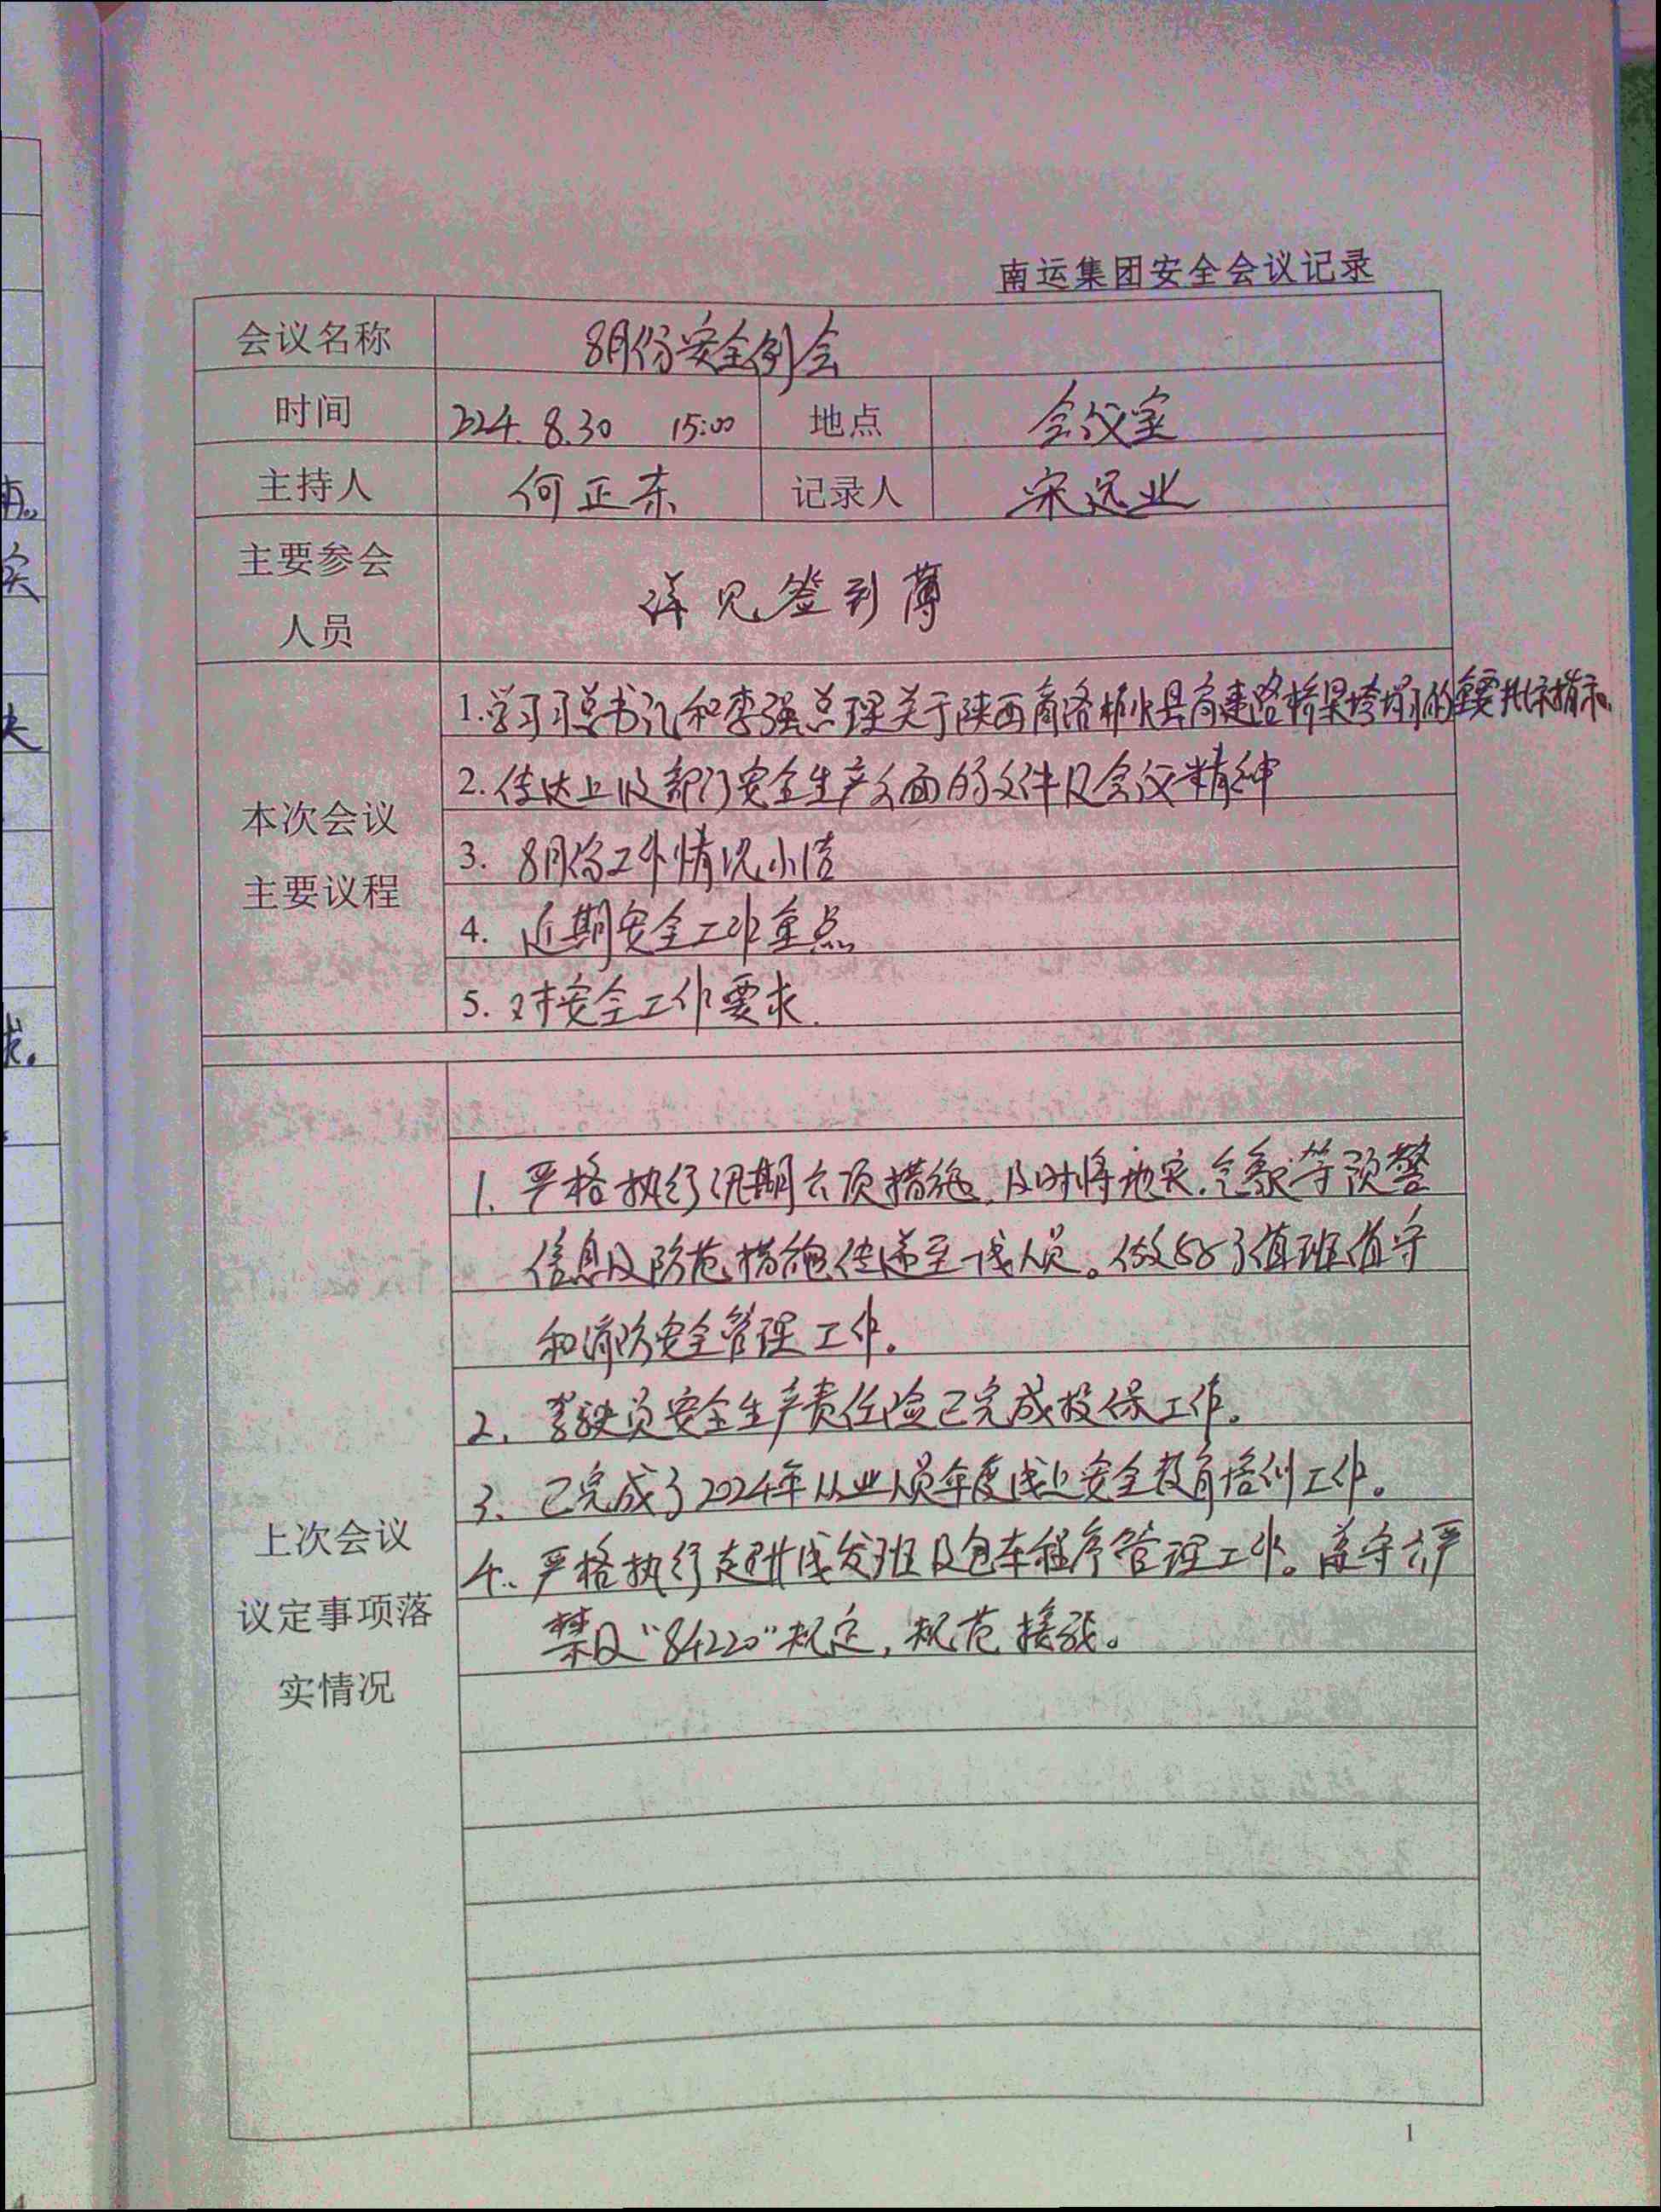 南运集团安全会议记录
会议名称 8月份安全例会
时间 2024.8.30 15:00 地点 会议室
主持人 何正东 记录人 宋远业
主要参会
人员
详见签到薄
本次会议
主要议程
1.学习习总书记和李强总理关于陕西商洛柞水县高速路桥梁垮塌的重要批示指示.
2.传达上级部门安全生产方面的文件及会议精神
3. 8月份工作情况小结
4. 近期安全工作重点
5. 对安全工作要求.
上次会议
议定事项落
实情况
1. 严格执行汛期六项措施,及时将地灾.气象等预警
信息及防范措施传递至一线人员。做好了值班值守
和消防安全管理工作。
2、驾驶员安全生产责任险已完成投保工作。
3、已完成了2024年从业人员年度线上安全教育培训工作。
4、严格执行支班线发班及包车程序管理工作。遵守六严
禁及“84220”规定,规范接驳。
1
南。
实
夫
求。
4